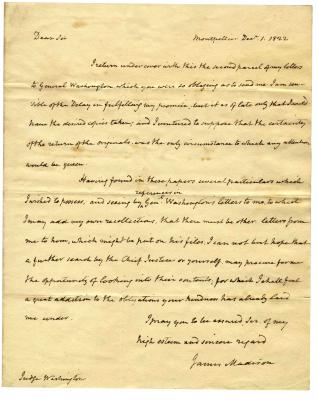 Dear Sir Montpellier Decr. 1. 1822
I return under cover with this the second parcel of my letters
to General Washington which you were so obliging as to send me I am sen-
sible of the delay in fulfilling my promise. but it is of late only that I could
have the desired copies taken; and I ventured to suppose that the certainty
of the return of the originals, was the only circumstance to which any attention
would be given.
Having found in these papers several particulars which
I wished to possess, and seeing by
references in
Genl. Washington's letters to me, to which
I may add my own recollections, that there must be other letters from
me to him, which might be put on his files, I can not but hope that
a further search by the Chief Justice or yourself, may procure for me
the opportunity of looking into their contents, for which I shall feel
a great addition to the obligations your kindness has already laid
me under.
I pray you to be assured Sir. of my
high esteem and sincere regard
James Madison
Judge Washington